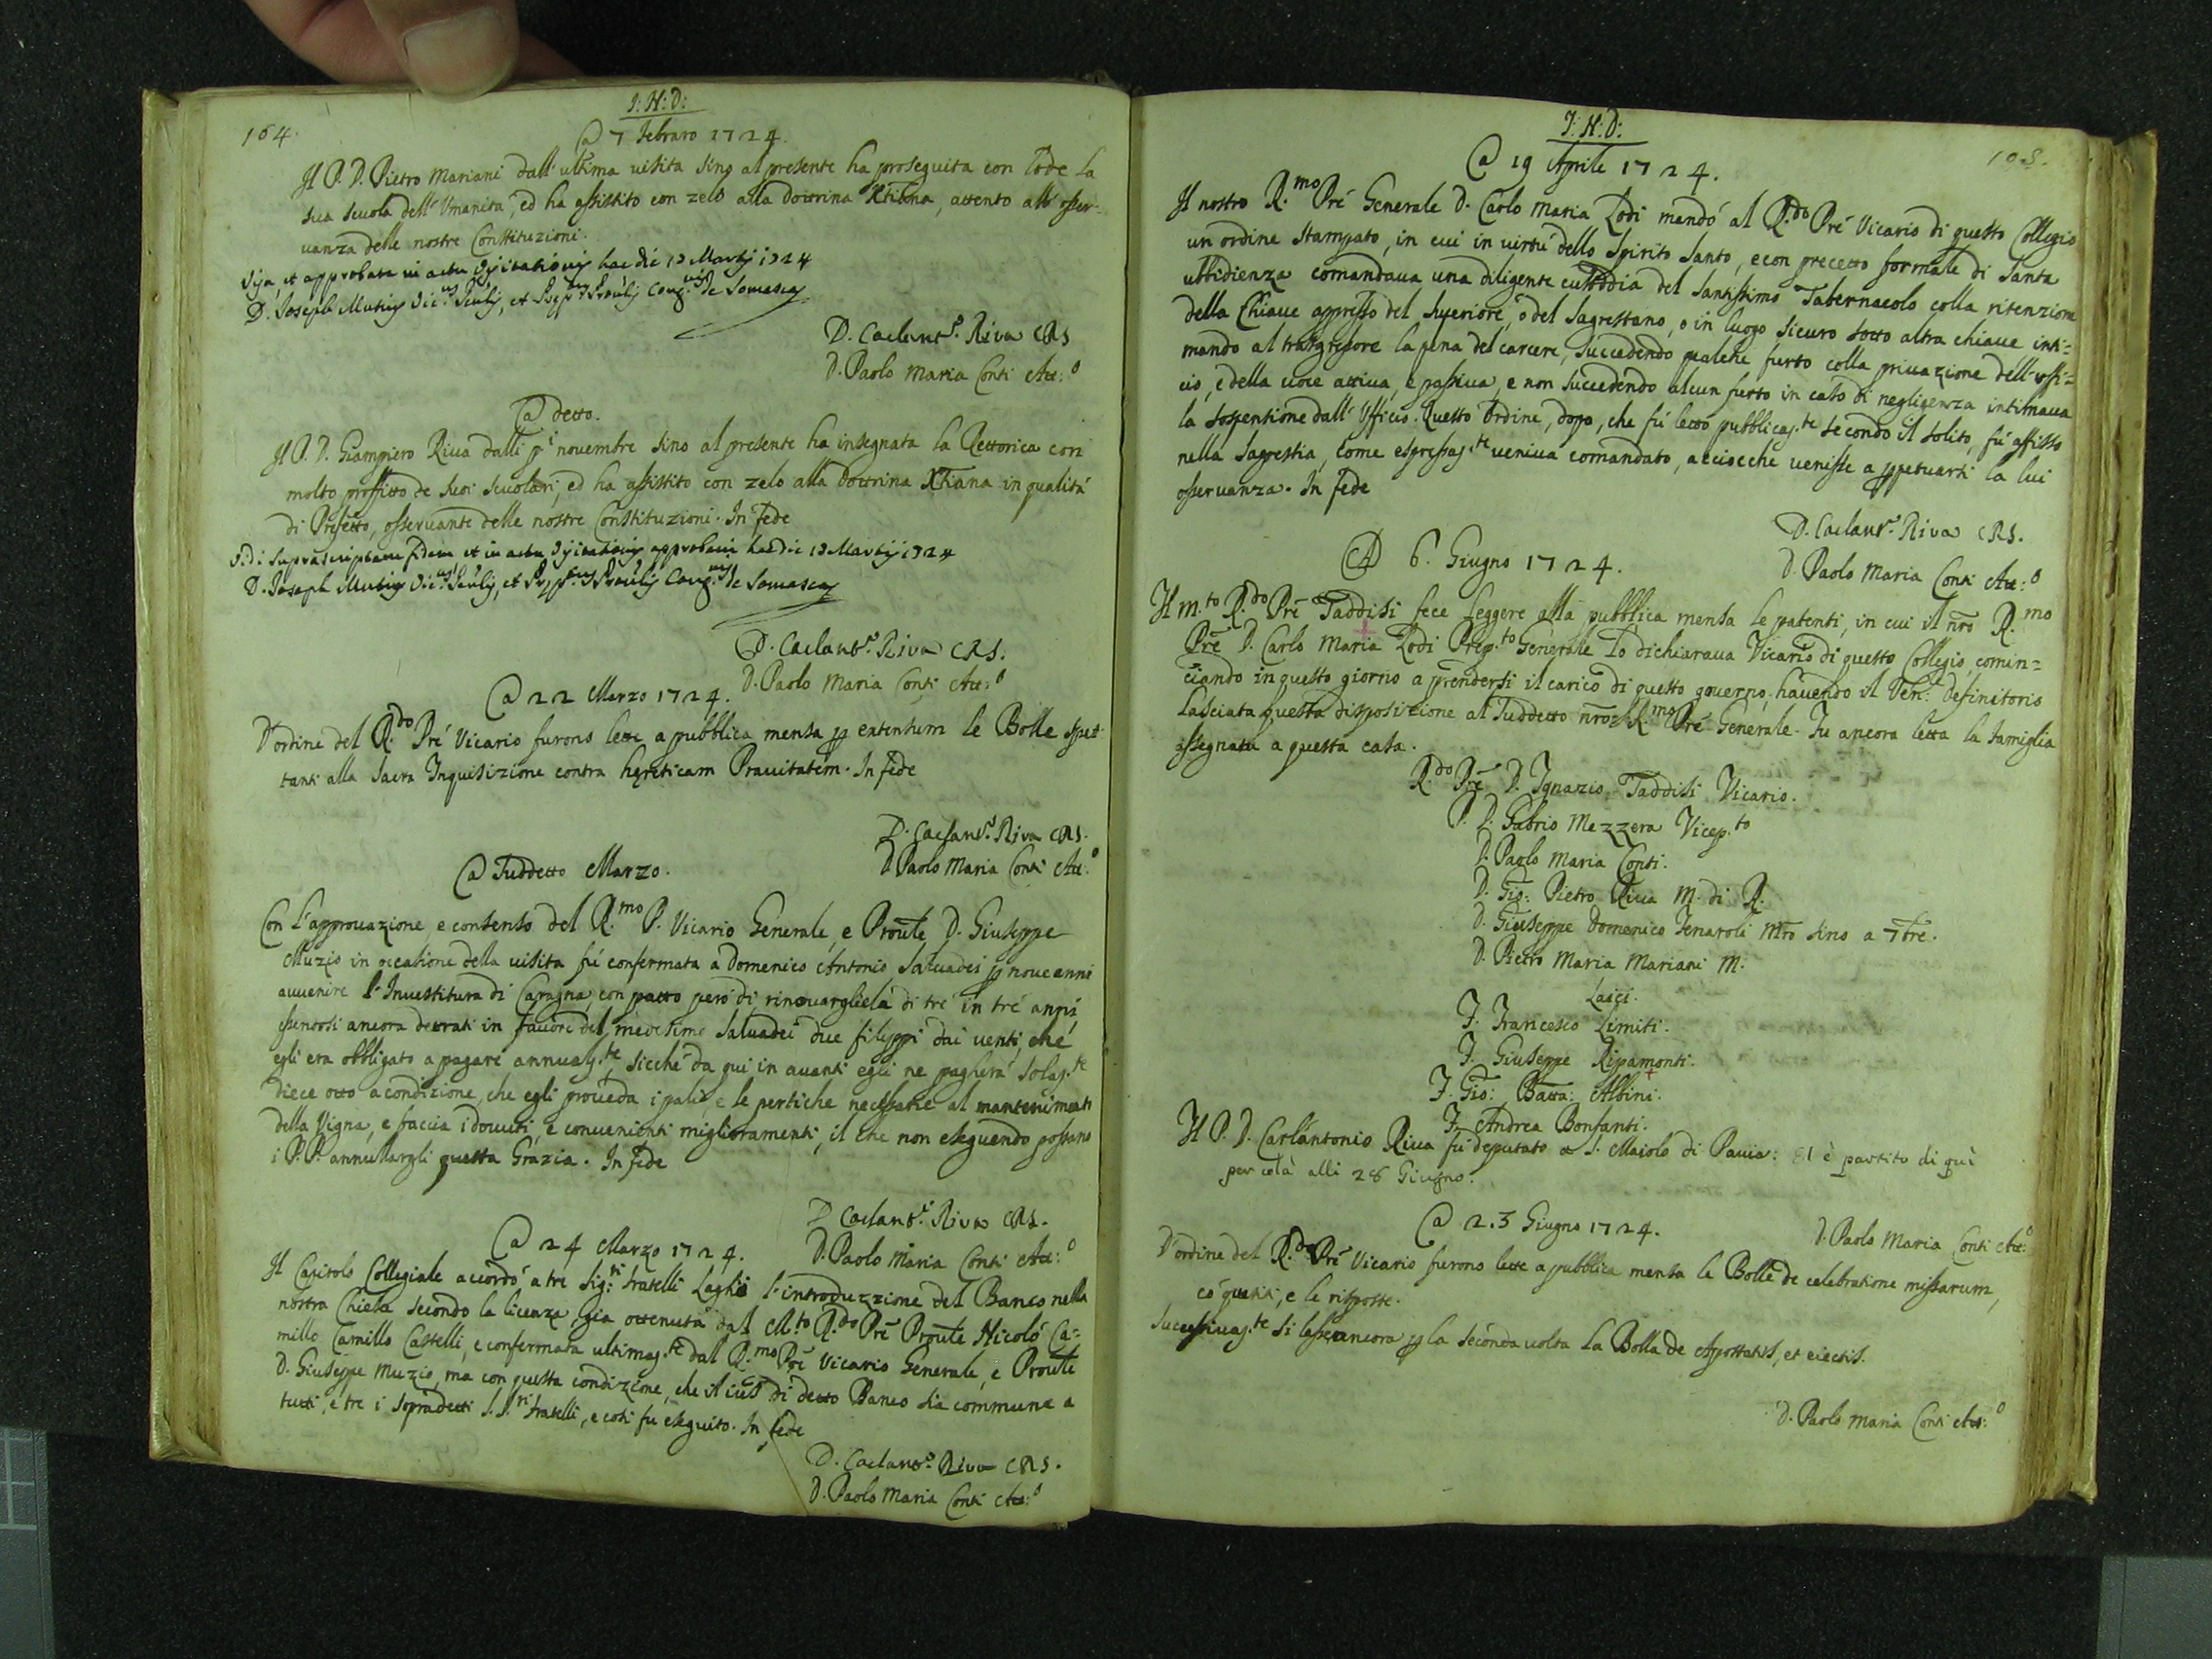 J: H: D:
164.
@ 7 Febraro 1724.
Il P. D. Pietro Mariani dall' ultima visita sino al presente ha proseguita con lode la
sua scuola dell' Umanità, ed ha assistito con zelo alla Dottrina Xtiana, attento all' osser-
vanza delle nostre Constituzioni.
Visa, et approbata in actu Visitationis hac die 13 Martij 1724
D. Joseph Mutius Vic.us Gnlis, et Prep.tus Prõulis Cong.nis de Somasca
D. Caelant.º Riva CRS
D. Paolo Maria Conti Att:º
@ detto.
Il P. D. Giampiero Riva dalli pº novembre sino al presente ha insegnata la Rettorica con
molto profitto de suoi scuolari, ed ha assistito con zelo alla Dottrina Xtiana in qualità
di Prefetto, osservante delle nostre Constituzioni. In fede
Vidi suprascriptam fidem et in actu Visitationis approbavi hac die 13 Martij 1724
D. Joseph Mutius Vic.us Gnlis, et Prep.tus Prõulis Cong.nis de Somasca
D. Caelant.º Riva CRS.
D. Paolo Maria Conti Att:º
@ 22 Marzo 1724.
D'ordine del R.do Prê Vicario furono lette a pubblica mensa p extensum le Bolle spet-
tanti alla sacra Inquisizione contra hęreticam Pravitatem. In fede
D. Caelant.º Riva CRS.
D. Paolo Maria Conti Att:º
@ suddetto Marzo.
Con l'approvazione e consenso del R.mo P. Vicario Generale, e Proũle D. Giuseppe
Muzio in occasione della visita fù confermata a Domenico Antonio Salvadei p nove anni
avvenire l'Investitura di Caragna con patto però di rinovargliela di trè in trè anni
essentosi ancora detrati in favore del medesimo Salvadei due filippi dai venti che
egli era obbligato a pagare annuam.te, sicchè da qui in avanti egli ne pagherà solam.te
diece otto a condizione, che egli proveda i pali, e le pertiche necessarie al mantenimento
della Vigna, e faccia i dovuti, e convenienti miglioramenti, il che non eseguendo possano
i P.P. annullargli questa Grazia. In fede
D. Caelant.º Riva CRS.
D. Paolo Maria Conti Att:º
@ 24 Marzo 1724.
Il Capitolo Collegiale accordò a tre Sig.ri fratelli Laghi l'introduzzione del Banco nella
nostra Chiesa secondo la licenza già ottenuta dal M.to R.do Prê Proũle Nicolò Ca-
millo Camillo Castelli, e confermata ultimam.te dal R.mo Prê Vicario Generale, e Proũle
D. Giuseppe Muzio, ma con questa condizione, che il ius di detto Banco sia commune a
tutti, e tre i sopradetti S.S.ri fratelli, e così fu eseguito. In fede
D. Caelant.º Riva CRS.
D. Paolo Maria Conti Att:º
J: H: D:
@ 19 Aprile 1724.
Il nostro R.mo Prê Generale D. Carlo Maria Lodi mandò al R.do Prê Vicario di questo Collegio
un ordine stampato, in cui in virtù dello Spirito Santo, e con precetto formale di Santa
ubbidienza comandava una diligente custodia del Santissimo Tabernacolo colla ritenzione
della Chiave appresso del Superiore, o del Sagrestano, o in luogo sicuro sotto altra chiave inti=
mando al trasgressore la pena del carcere, succedendo qualche furto colla privazione dell' uffi=
cio, e della voce attiva, e passiva, e non succedendo alcun furto in caso di negligenza intimava
la sospensione dall' Ufficio. Questo ordine, dopo, che fù letto pubblicam.te secondo il solito, fù affisso
nella sagrestia, come espressam.te veniva comandato, acciocchè venisse a ppetuarsi la lui
osservanza. In fede
D. Caelant.º Riva CRS.
D. Paolo Maria Conti Att:º
@ 6. Giugno 1724.
Il M.to R.do Prê Taddisi fece leggere alla pubblica mensa le patenti, in cui il nrõ R.mo
Prê D. Carlo Maria Lodi Prep.to Generale lo dichiarava Vicario di questo Collegio, comin=
ciando in questo giorno a prendersi il carico di questo governo, havendo il Ven: Definitorio
lasciata questa disposizione al suddetto nrõ R.mo Prê Generale. Fu ancora letta la famiglia
assegnata a questa casa.
R.do Prê D. Ignazio Taddisi Vicario.
P. D. Gabrio Mezzera Vicep.to
D. Paolo Maria Conti.
D. Gio: Pietro Riva M. di R.
D. Giuseppe Domenico Tenaroli Mrõ sino a 7bre.
D. Pietro Maria Mariani M.
Laici.
F. Francesco Limiti.
F. Giuseppe Ripamonti.
F. Gio: Batta: Albini.
F. Andrea Bonfanti.
Il P. D. Carlantonio Riva fu deputato a S. Maiolo di Pavia: ed è partito di quì
per colà alli 28 Giugno.
D. Paolo Maria Conti Att:º
@ 23 Giugno 1724.
D'ordine del R.do Prê Vicario furono lette a pubblica mensa le Bolle de celebratione missarum,
co' quesiti, e le risposte.
Successivam.te si lesse ancora p la seconda volta la Bolla de Apostatis, et eiectis.
D. Paolo Maria Conti Att:º